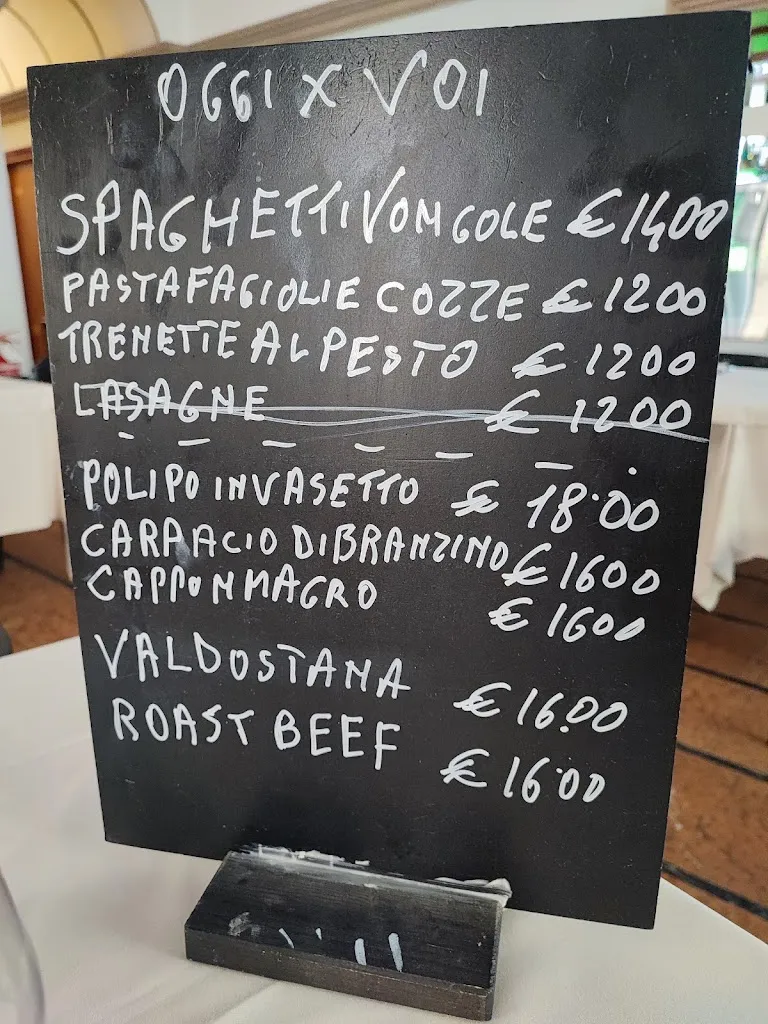 OGGI X VOI
SPAGHETTI VONGOLE € 14,00
PASTA FAGIOLI E COZZE € 1200
TRENETTE AL PESTO € 1200
LASAGNE € 1200
POLIPO IN VASETTO € 18.00
CARPACIO DI BRANZINO € 1600
CAPPON MAGRO € 1600
VALDOSTANA € 16.00
ROAST BEEF € 16.00